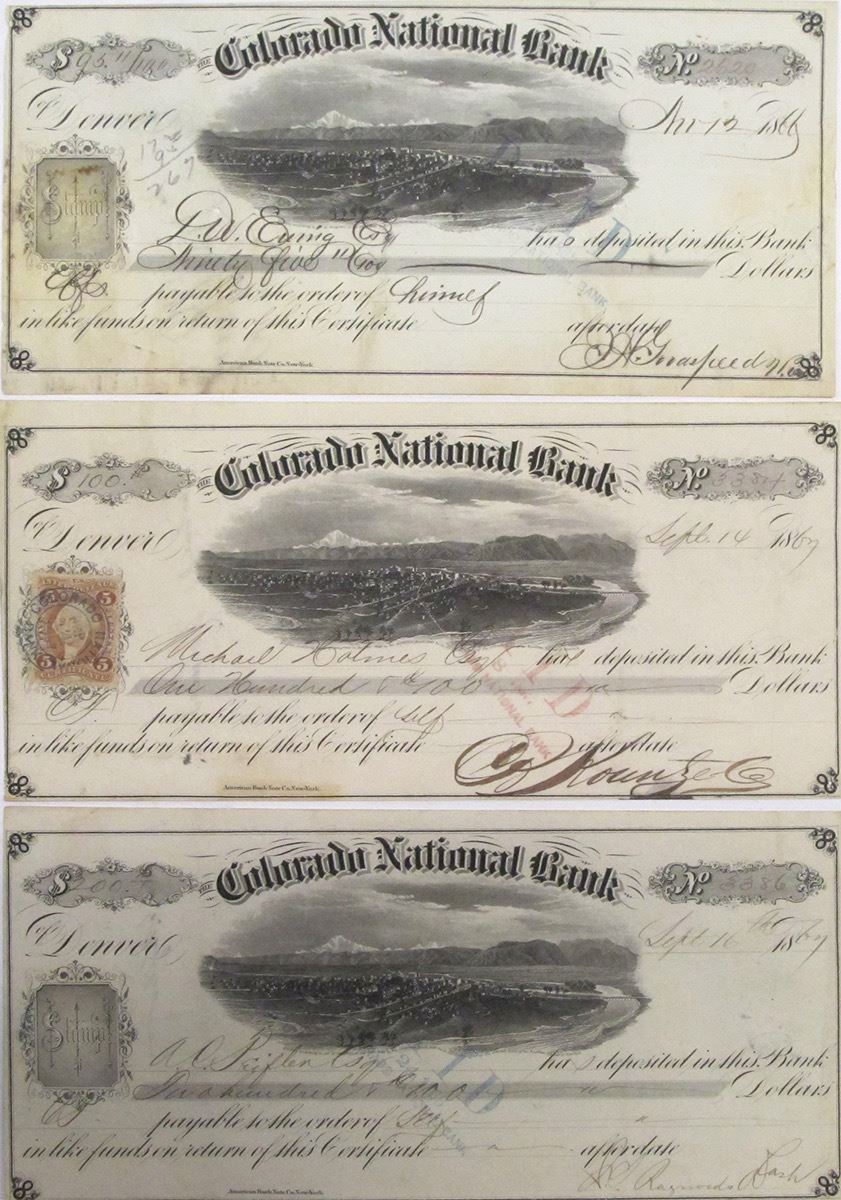 $ 95 11/100
THE Colorado National Bank
No
of Denver
12 1866
Stamp
267
PAID
has deposited in this Bank
Ninety five 11/100 Dollars
payable to the order of himself
in like funds on return of this Certificate after date
American Bank Note Co. New-York
$ 100.
THE Colorado National Bank
No 3384
of Denver
Sept. 14 1867
5 5
Michael Holmes Esq has deposited in this Bank
One Hundred & 00/100 Dollars
payable to the order of Self
PAID
NATIONAL BANK
in like funds on return of this Certificate after date
Kountze
American Bank Note Co. New-York.
$ 200.
THE Colorado National Bank
No 3386
of Denver
Sept 16th 1867
Stamp
A.C. Esq has deposited in this Bank
Two hundred Dollars
PAID
payable to the order of Self
in like funds on return of this Certificate after date
Raynolds Cash
American Bank Note Co. New-York.